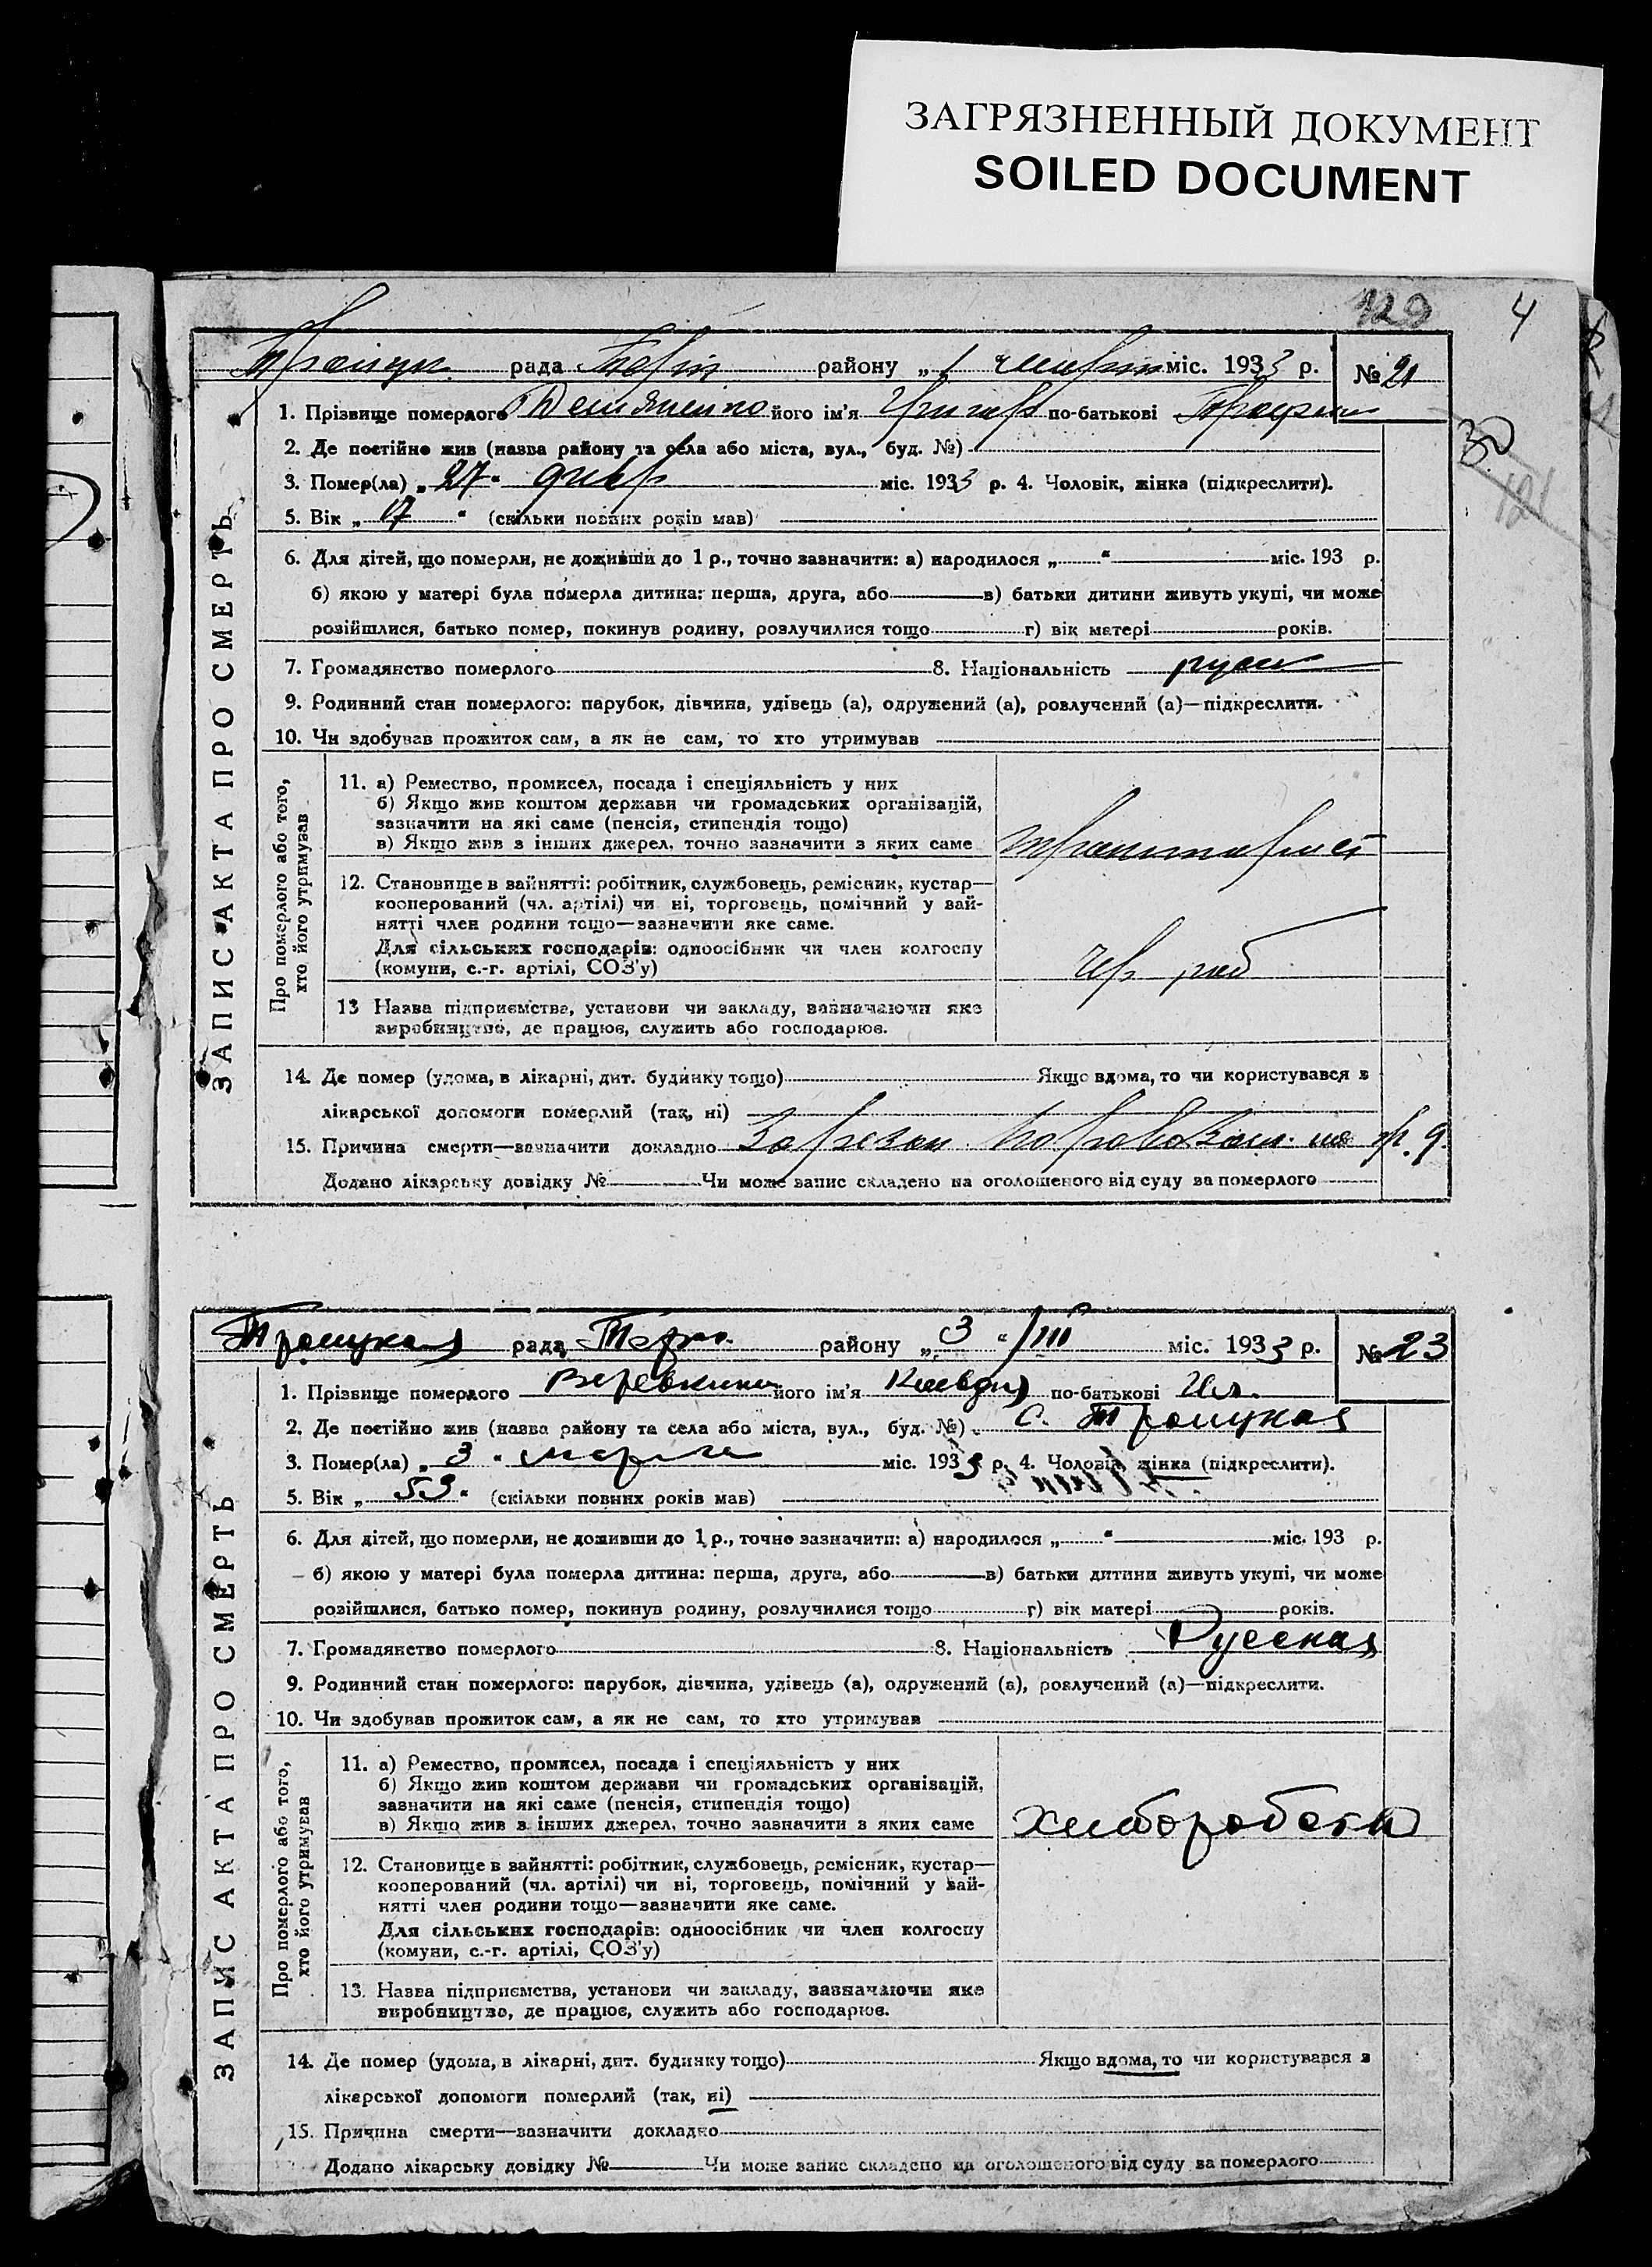 ЗАГРЯЗНЕННЫЙ ДОКУМЕНТ
SOILED DOCUMENT
129 4
рада району „1 міс. 1933 р. № 21
30
1. Прізвище померлого його ім'я по-батькові
2. Де постійно жив (назва району та села або міста, вул., буд. №)
3. Помер(ла) „27“ міс. 1933 р. 4. Чоловік, жінка (підкреслити).
5. Вік „17“ (скільки повних років мав)
6. Для дітей, що померли, не доживши до 1 р., точно зазначити: а) народилося „ “ міс. 193 р.
б) якою у матері була померла дитина: перша, друга, або в) батьки дитини живуть укупі, чи може
розійшлися, батько помер, покинув родину, розлучилися тощо г) вік матері років.
7. Громадянство померлого 8. Національність руск
9. Родинний стан померлого: парубок, дівчина, удівець (а), одружений (а), розлучений (а)—підкреслити.
10. Чи здобував прожиток сам, а як не сам, то хто утримував
ЗАПИС АКТА ПРО СМЕРТЬ
Про померлого або того,
хто його утримував
11. а) Ремество, промисел, посада і спеціяльність у них
б) Якщо жив коштом держави чи громадських організацій,
зазначити на які саме (пенсія, стипендія тощо)
в) Якщо жив з інших джерел, точно зазначити з яких саме
12. Становище в зайнятті: робітник, службовець, ремісник, кустар—
кооперований (чл. артілі) чи ні, торговець, помічний у зай-
нятті член родини тощо—зазначити яке саме.
Для сільських господарів: одноосібник чи член колгоспу
(комуни, с.-г. артілі, СОЗ'у)
13 Назва підприємства, установи чи закладу, зазначаючи яке
виробництво, де працює, служить або господарює.
14. Де помер (удома, в лікарні, дит. будинку тощо) Якщо вдома, то чи користувався з
лікарської допомоги померлий (так, ні)
15. Причина смерти—зазначити докладно
Додано лікарську довідку № Чи може запис складено на оголошеного від суду за померлого
Троицкая рада району „3“ III міс. 1933 р. № 23
1. Прізвище померлого його ім'я по-батькові
2. Де постійно жив (назва району та села або міста, вул., буд. №) с. Троицкая
3. Помер(ла) „3“ марта міс. 1933 р. 4. Чоловік, жінка (підкреслити).
5. Вік „53“ (скільки повних років мав)
6. Для дітей, що померли, не доживши до 1 р., точно зазначити: а) народилося „ “ міс. 193 р.
б) якою у матері була померла дитина: перша, друга, або в) батьки дитини живуть укупі, чи може
розійшлися, батько помер, покинув родину, розлучилися тощо г) вік матері років.
7. Громадянство померлого 8. Національність Русская
9. Родинний стан померлого: парубок, дівчина, удівець (а), одружений (а), розлучений (а)—підкреслити.
10. Чи здобував прожиток сам, а як не сам, то хто утримував
ЗАПИС АКТА ПРО СМЕРТЬ
Про померлого або того,
хто його утримував
11. а) Ремество, промисел, посада і спеціяльність у них
б) Якщо жив коштом держави чи громадських організацій,
зазначити на які саме (пенсія, стипендія тощо)
в) Якщо жив з інших джерел, точно зазначити з яких саме
12. Становище в зайнятті: робітник, службовець, ремісник, кустар—
кооперований (чл. артілі) чи ні, торговець, помічний у зай-
нятті член родини тощо—зазначити яке саме.
Для сільських господарів: одноосібник чи член колгоспу
(комуни, с.-г. артілі, СОЗ'у)
13. Назва підприємства, установи чи закладу, зазначаючи яке
виробництво, де працює, служить або господарює.
14. Де помер (удома, в лікарні, дит. будинку тощо) Якщо вдома, то чи користувався з
лікарської допомоги померлий (так, ні)
15. Причина смерти—зазначити докладно
Додано лікарську довідку № Чи може запис складено на оголошеного від суду за померлого